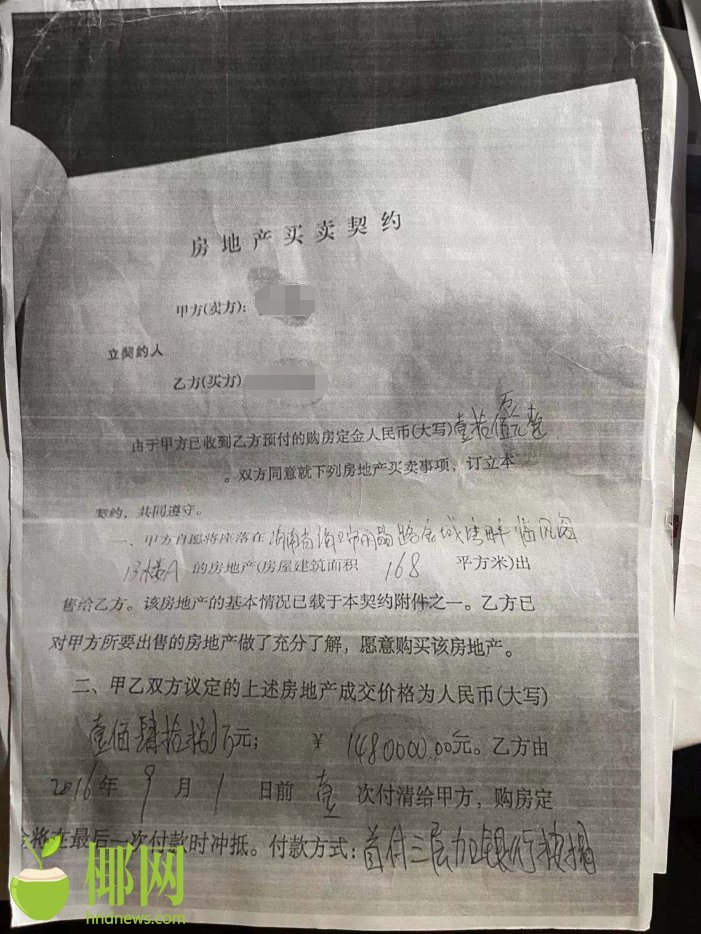 房地产买卖契约
甲方(卖方):
立契约人
乙方(买方)
由于甲方已收到乙方预付的购房定金人民币(大写)壹拾伍万元整
。双方同意就下列房地产买卖事项,订立本
契约,共同遵守。
一、甲方自愿将座落在海南省海口市 路金城 临风阁
13楼A 的房地产(房屋建筑面积 168 平方米)出
售给乙方。该房地产的基本情况已载于本契约附件之一。乙方已
对甲方所要出售的房地产做了充分了解,愿意购买该房地产。
二、甲乙双方议定的上述房地产成交价格为人民币(大写)
壹佰肆拾捌万元; ¥ 1480000.00元。乙方由
2016年 9 月 1 日前 壹 次付清给甲方,购房定
金将在最后一次付款时冲抵。付款方式:首付三层加银行按揭
椰网
hndnews.com